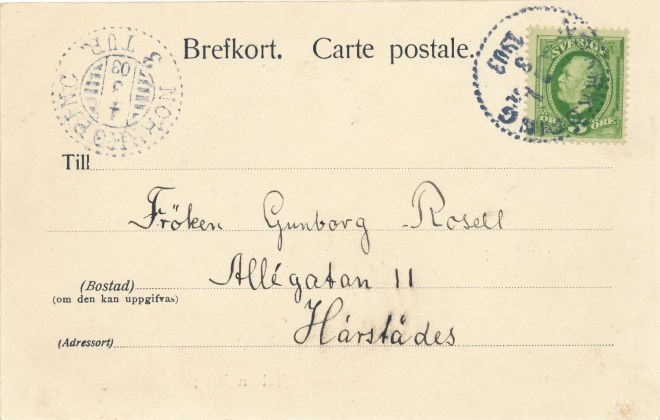 Brefkort. Carte postale.
NORRKÖPING
3 TUR
4
3
03
1903
SVERIGE
5 ÖRE
Till
Fröken Gunborg Rosell
(Bostad)
(om den kan uppgifvas)
Allégatan 11
(Adressort)
Härstädes